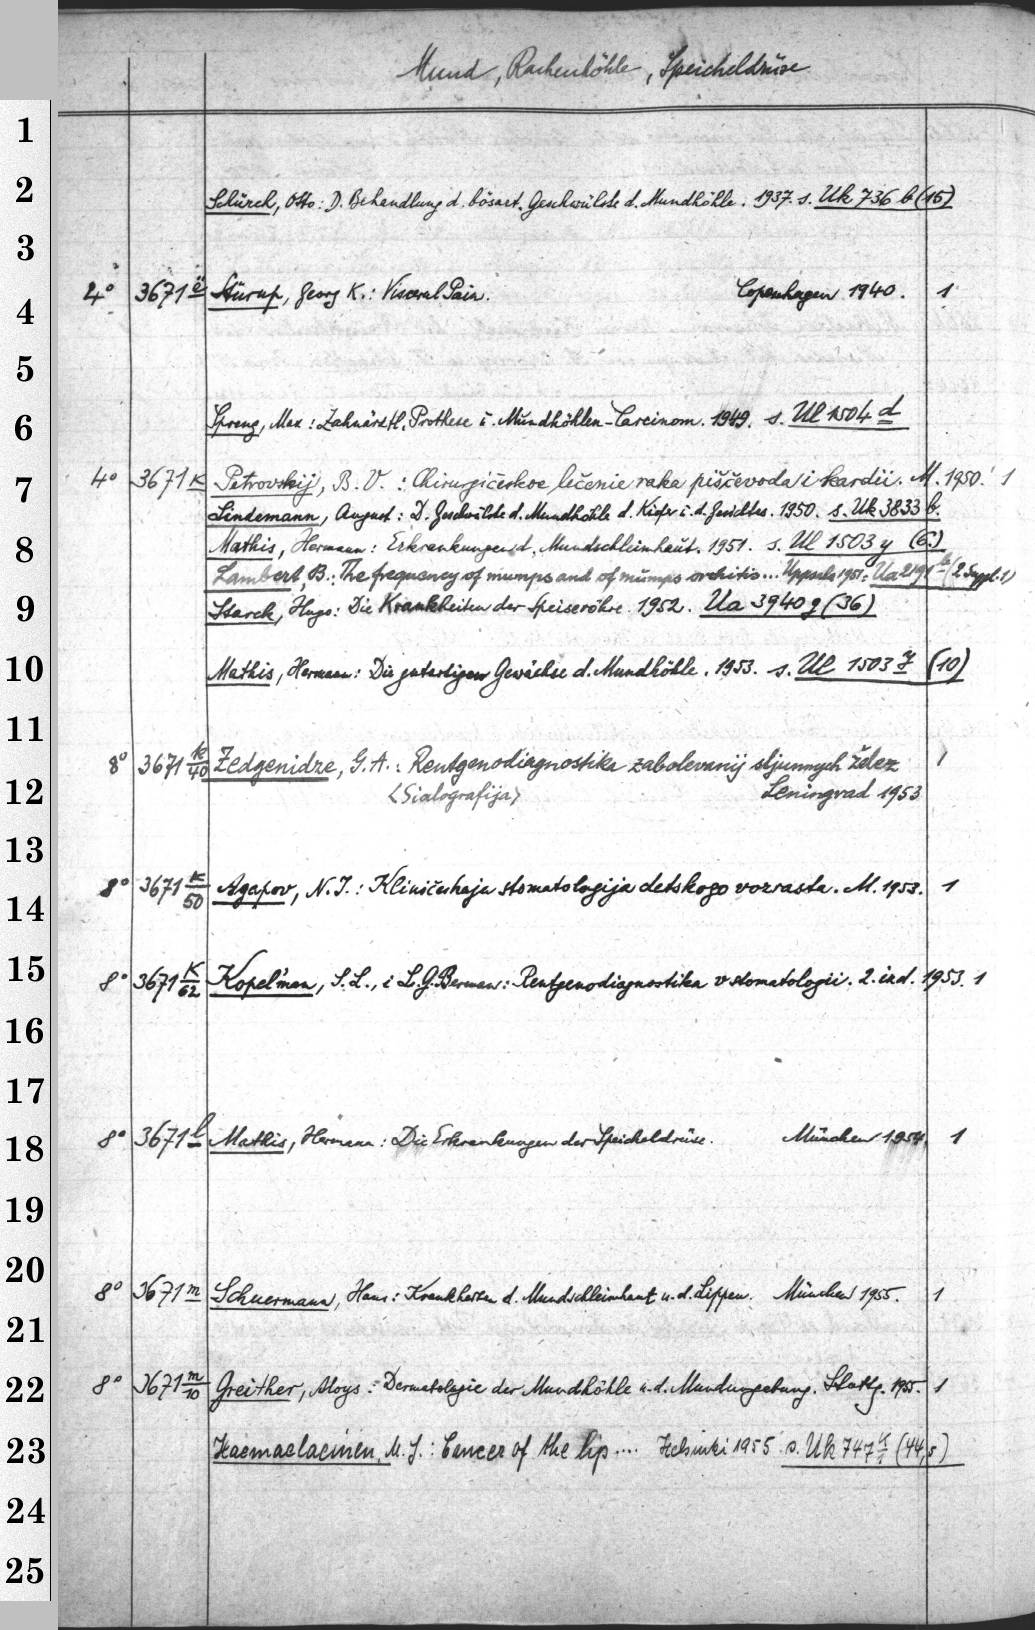 Mund, Rachenhöhle, Speicheldrüse
1
2
Schürch, Otto: D. Behandlung d. bösart. Geschwülste d. Mundhöhle. 1937. s. Uk 736 b (15)
3
4° 3671 ë Stürup, Georg K.: Visceral Pain. Copenhagen 1940. 1
4
5
6 Spreng, Max: Zahnärztl. Prothese i. Mundhöhlen-Carcinom. 1949. s. Ul 1504 d
4° 3671 k Petrovskij, B. V.: Chirurgičeskoe lečenie raka piščevoda i kardii. M. 1950. 1
7
Lindemann, August: D. Geschwülste d. Mundhöhle d. Kiefer u. d. Gesichtes. 1950. s. Uk 3833 b.
8 Mathis, Hermann: Erkrankungen d. Mundschleimhaut. 1951. s. Ul 1503 y (6.)
Lambert, B.: The frequency of mumps and of mumps orchitis... Uppsala 1951: Ua 2191 (2. Suppl. 1)
9 Starck, Hugo: Die Krankheiten der Speiseröhre 1952. Ua 3940 g (36)
10 Mathis, Hermann: Die gutartigen Gewächse d. Mundhöhle. 1953. s. Ul 1503 y (10)
11
8° 3671 k/40 Zedgenidze, G. A.: Rentgenodiagnostika zabolevanij sljunnych želez 1
12 <Sialografija> Leningrad 1953
13
8° 3671 k/50 Agapov, N. I.: Kliničeskaja stomatologija detskogo vozrasta. M. 1953. 1
14
15
8° 3671 K/62 Kopel'man, S. L., i L. G. Berman: Rentgenodiagnostika v stomatologii. 2. izd. 1953. 1
16
17
8° 3671 l Mathis, Hermann: Die Erkrankungen der Speicheldrüse. München 1954. 1
18
19
20
8° 3671 m Schuermann, Hans: Krankheiten d. Mundschleimhaut u. d. Lippen. München 1955. 1
21
22 8° 3671 m/10 Greither, Aloys: Dermatologie der Mundhöhle u. d. Mundumgebung. Stuttg. 1955. 1
23 M. J.: Cancer of the lip .... Helsinki 1955 s. Uk 747 (44,5)
24
25